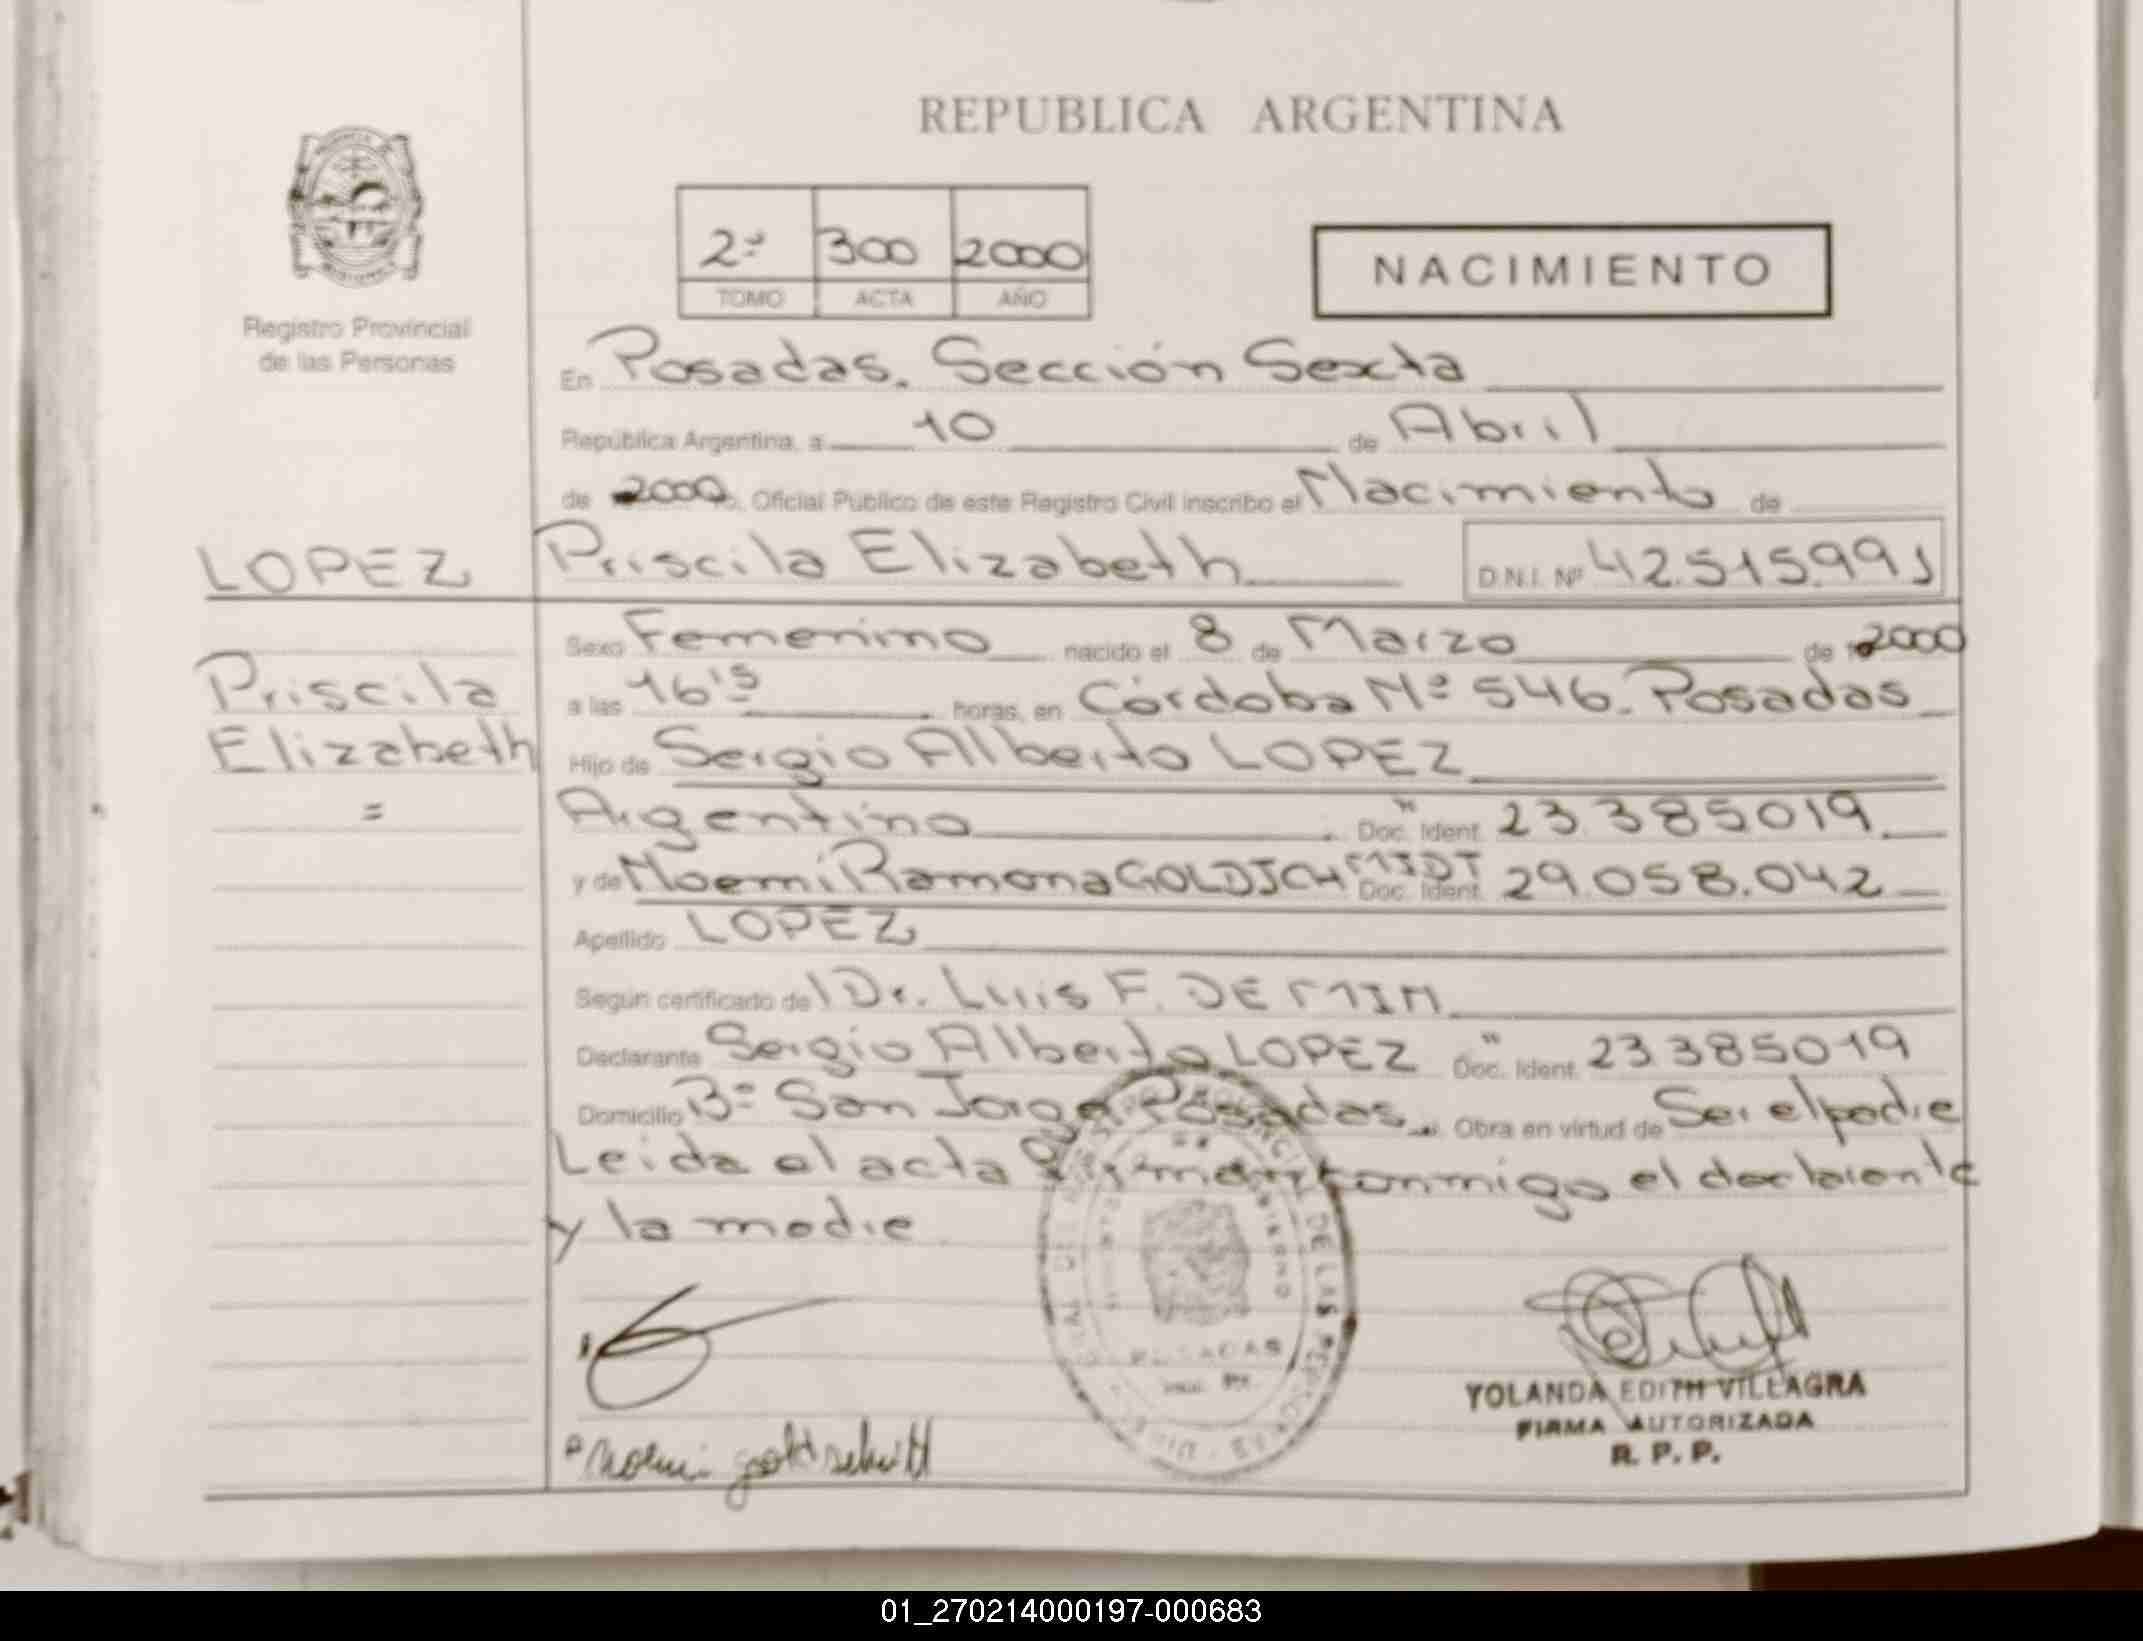 REPUBLICA ARGENTINA
2ª 300 2000
TOMO ACTA AÑO
NACIMIENTO
Registro Provincial
de las Personas
En Posadas, Sección Sexta
República Argentina, a 10 de Abril
de 2000 Oficial Público de este Registro Civil inscribo el Nacimiento de
LOPEZ Priscila Elizabeth D.N.I. Nº 42.515.991
Sexo Femenino nacido el 8 de Marzo de 2000
Priscila
Elizabeth
=
a las 16'5 horas, en Córdoba Nº 546. Posadas
Hijo de Sergio Alberto LOPEZ
Argentino Doc. Ident. 23.385019
y de Noemi Ramona GOLDSCHMIDT Doc. Ident. 29.058.042
Apellido LOPEZ
Según certificado del Dr. Luis F. DEMIN
Declarante Sergio Alberto LOPEZ Doc. Ident. 23385019
Domicilio Bº San Jorge Posadas Obra en virtud de Ser el padre
Leida el acta conmigo el declarante
y la madre
DE LAS PERSONAS
POSADAS
Noemi goldschmitt
YOLANDA EDITH VILLAGRA
FIRMA AUTORIZADA
R. P. P.
01_270214000197-000683